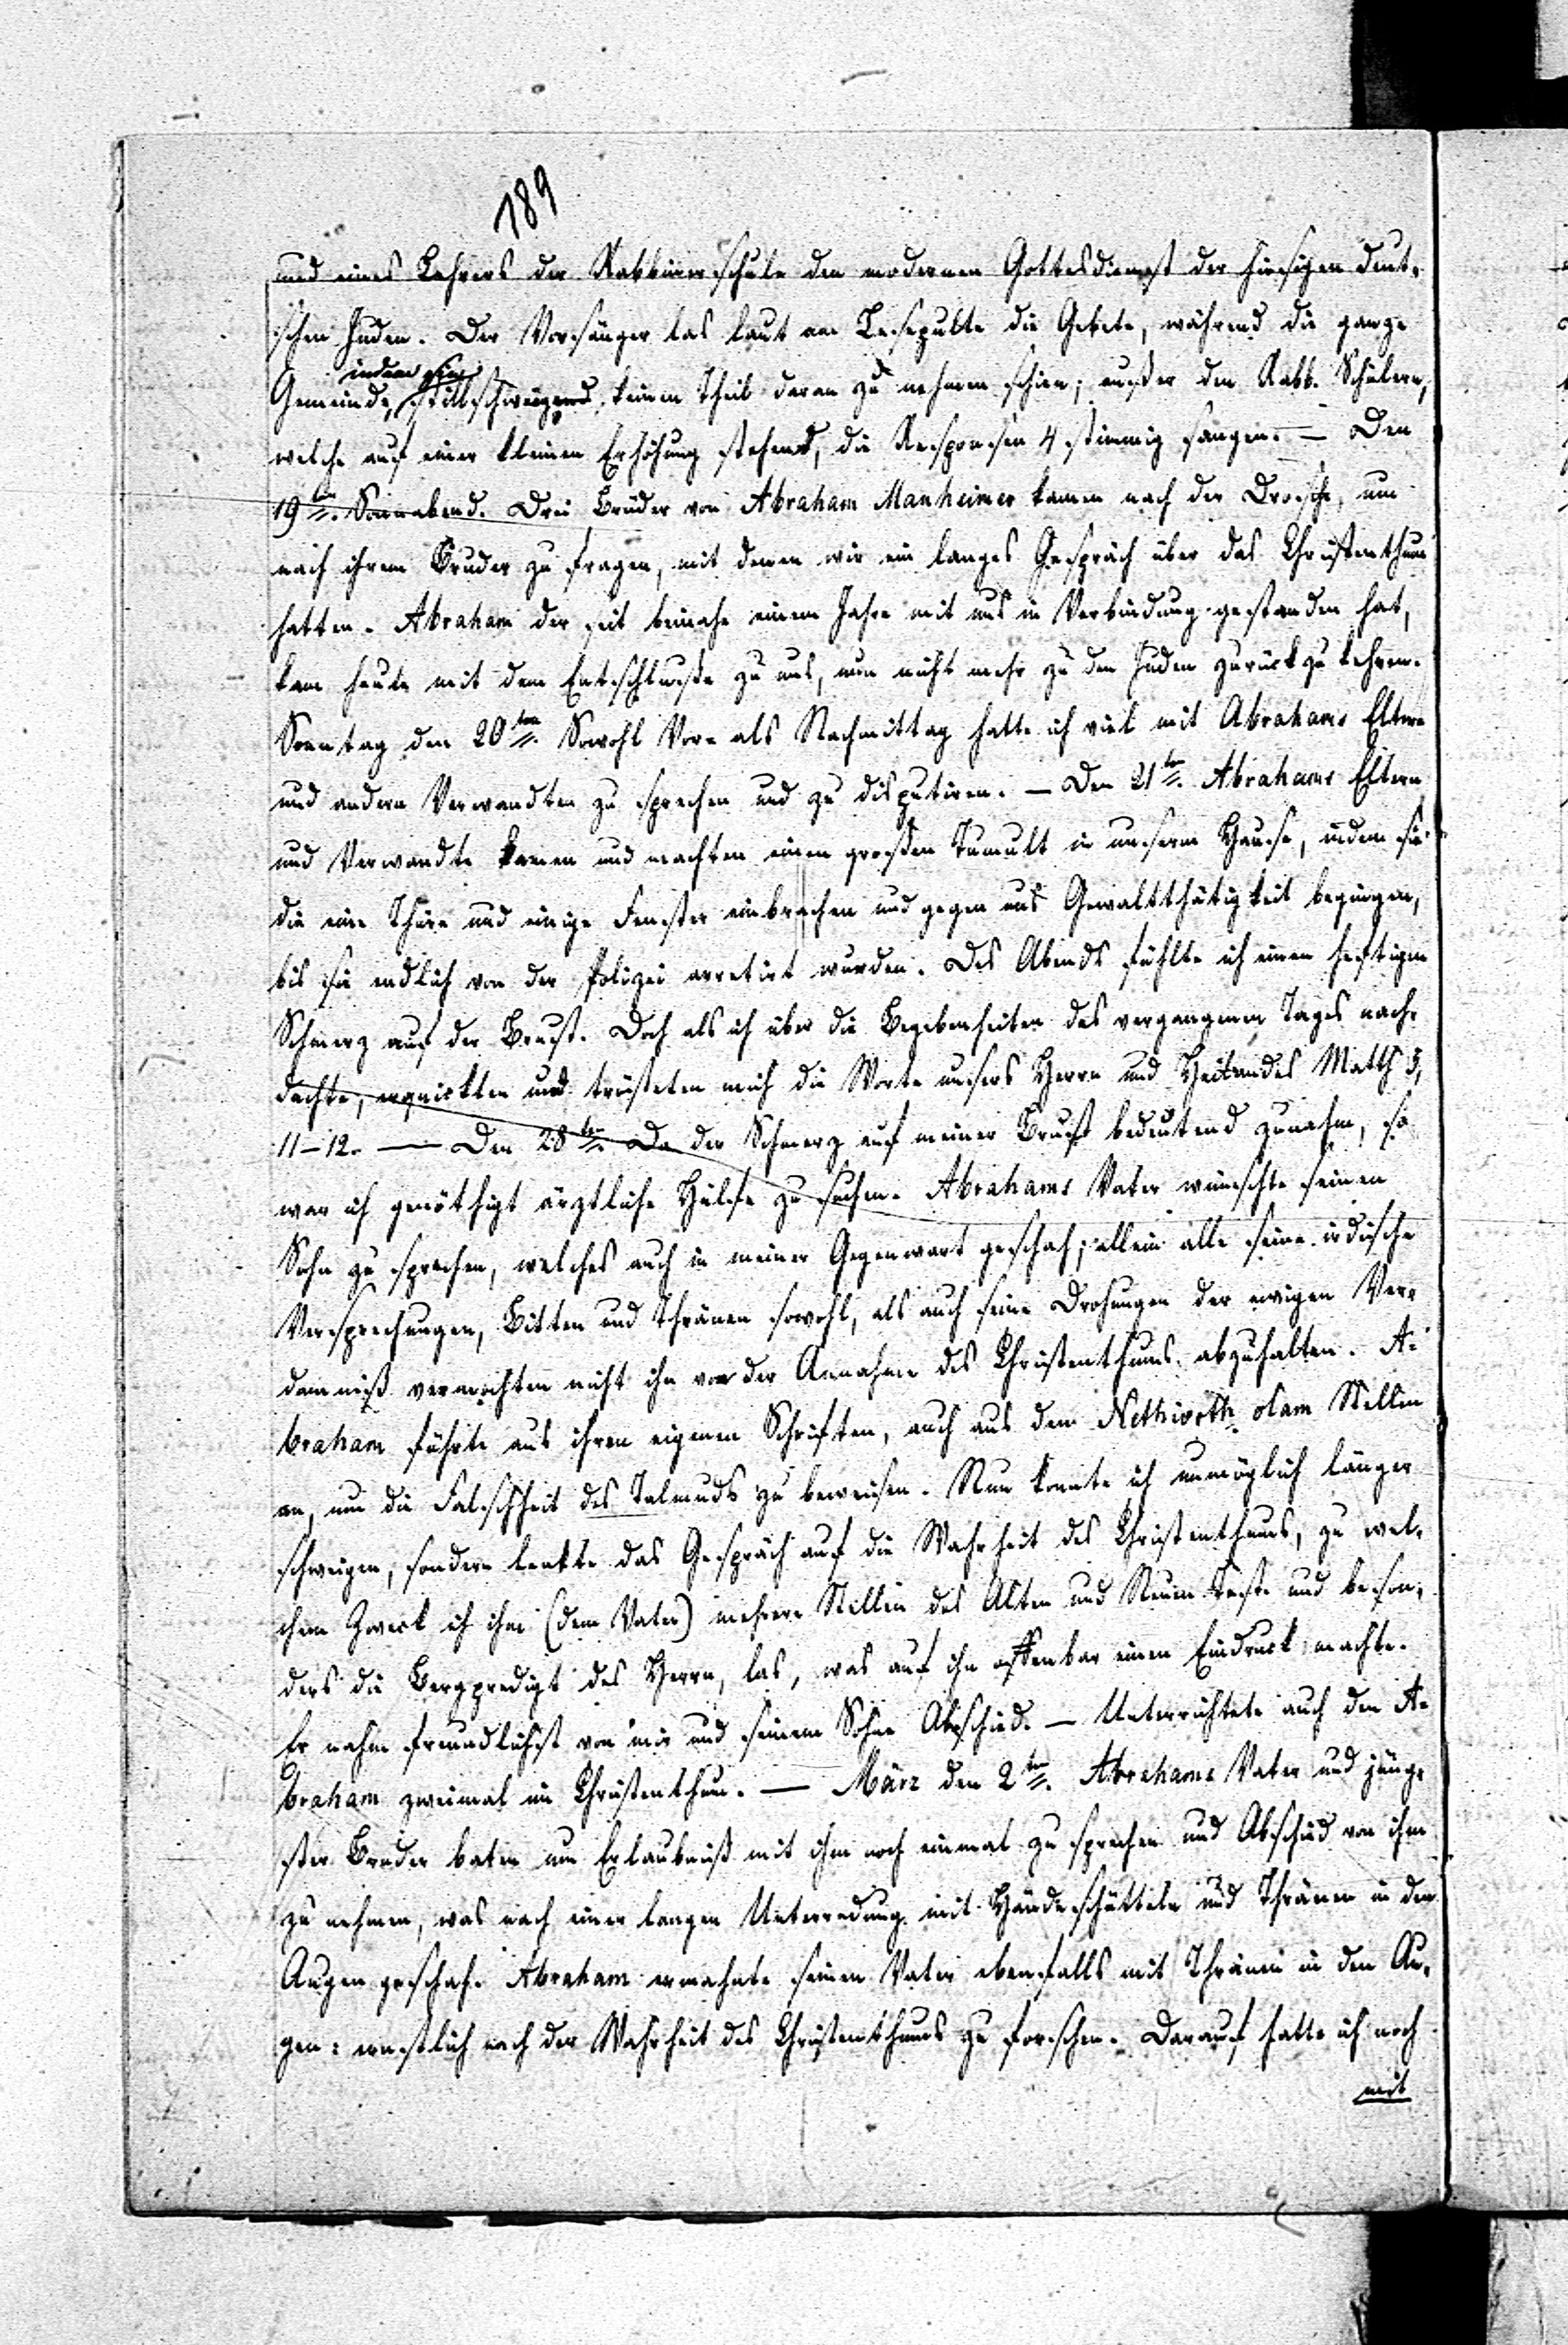 189
und eines Lehrers der Rabbinerschule den modernen Gottesdienst der hiesigen deut-
schen Juden. Der Vorsänger las laut am Lesepulte die Gebete, während die ganze
indem sie
Gemeinde, stillschweigend, keinen Theil daran zu nehmen schien; außer den Rabb. Schülern,
welche auf einer kleinen Erhöhung stehend, die Responsen 4 stimmig sangen. – Den
19ten. Sonnabend. Drei Brüder von Abraham Manheimer kamen nach der Drosche, um
nach ihrem Bruder zu fragen, mit denen wir ein langes Gespräch über das Christenthum
hatten. Abraham der seit beinahe einem Jahre mit uns in Verbindung gestanden hat,
kam heute mit dem Entschlusse zu uns, nun nicht mehr zu den Juden zurück zu kehren.
Sonntag den 20ten. Sowohl Vor- als Nachmittag hatte ich viel mit Abrahams Eltern
und andern Verwandten zu sprechen und zu disputiren. – Den 21ten. Abrahams Eltern
und Verwandte kamen und machten einen großen Tumult in unserm Hause, indem sie
die eine Thüre und einige Fenster einbrachen und gegen uns Gewaltthätigkeit begingen,
bis sie endlich von der Polizei arretirt wurden. Des Abends fühlte ich einen heftigen
Schmerz auf der Brust. Doch als ich über die Begebenheiten des vergangenen Tages nach-
dachte, erquickten und trösteten mich die Worte unsers Herrn und Heilandes Matth 5,
11–12. — Den 28ten. Da der Schmerz auf meiner Brust bedeutend zunahm, so
war ich genöthigt ärztliche Hülfe zu suchen. Abrahams Vater wünschte seinen
Sohn zu sprechen, welches auch in meiner Gegenwart geschah; allein alle seine irdische
Versprechungen, Bitten und Thränen sowohl, als auch seine Drohungen der ewigen Ver-
dammniß vermochten nicht ihn von der Annahme des Christenthums abzuhalten. A-
braham führte aus ihren eigenen Schriften, auch aus dem Nethivoth olam Stellen
an, um die Falschheit des Talmuds zu beweisen. Nun konnte ich unmöglich länger
schweigen, sondern lenkte das Gespräch auf die Wahrheit des Christenthums, zu wel-
chem Zweck ich ihm (dem Vater) mehrere Stellen des Alten und Neuen Test. und beson-
ders die Bergpredigt des Herrn, las, was auf ihn offenbar einen Eindruck machte.
Er nahm freundlichst von mir und seinem Sohne Abschied. – Unterrichtete auch den A-
braham zweimal im Christenthum. — März den 2ten. Abrahams Vater und jüng-
ster Bruder baten um Erlaubniß mit ihm noch einmal zu sprechen und Abschied von ihm
zu nehmen, was nach einer langen Unterredung mit Händeschütteln und Thränen in den
Augen geschah. Abraham ermahnte seinen Vater ebenfalls mit Thränen in den Au-
gen: ernstlich nach der Wahrheit des Christenthums zu forschen. Darauf hatte ich noch
mit